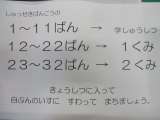 しゅっせきばんごうの
1～11ばん → 学しゅうしつ
12～22ばん → 1くみ
23～32ばん → 2くみ
きょうしつに入って
自ぶんのいすに すわって まちましょう。